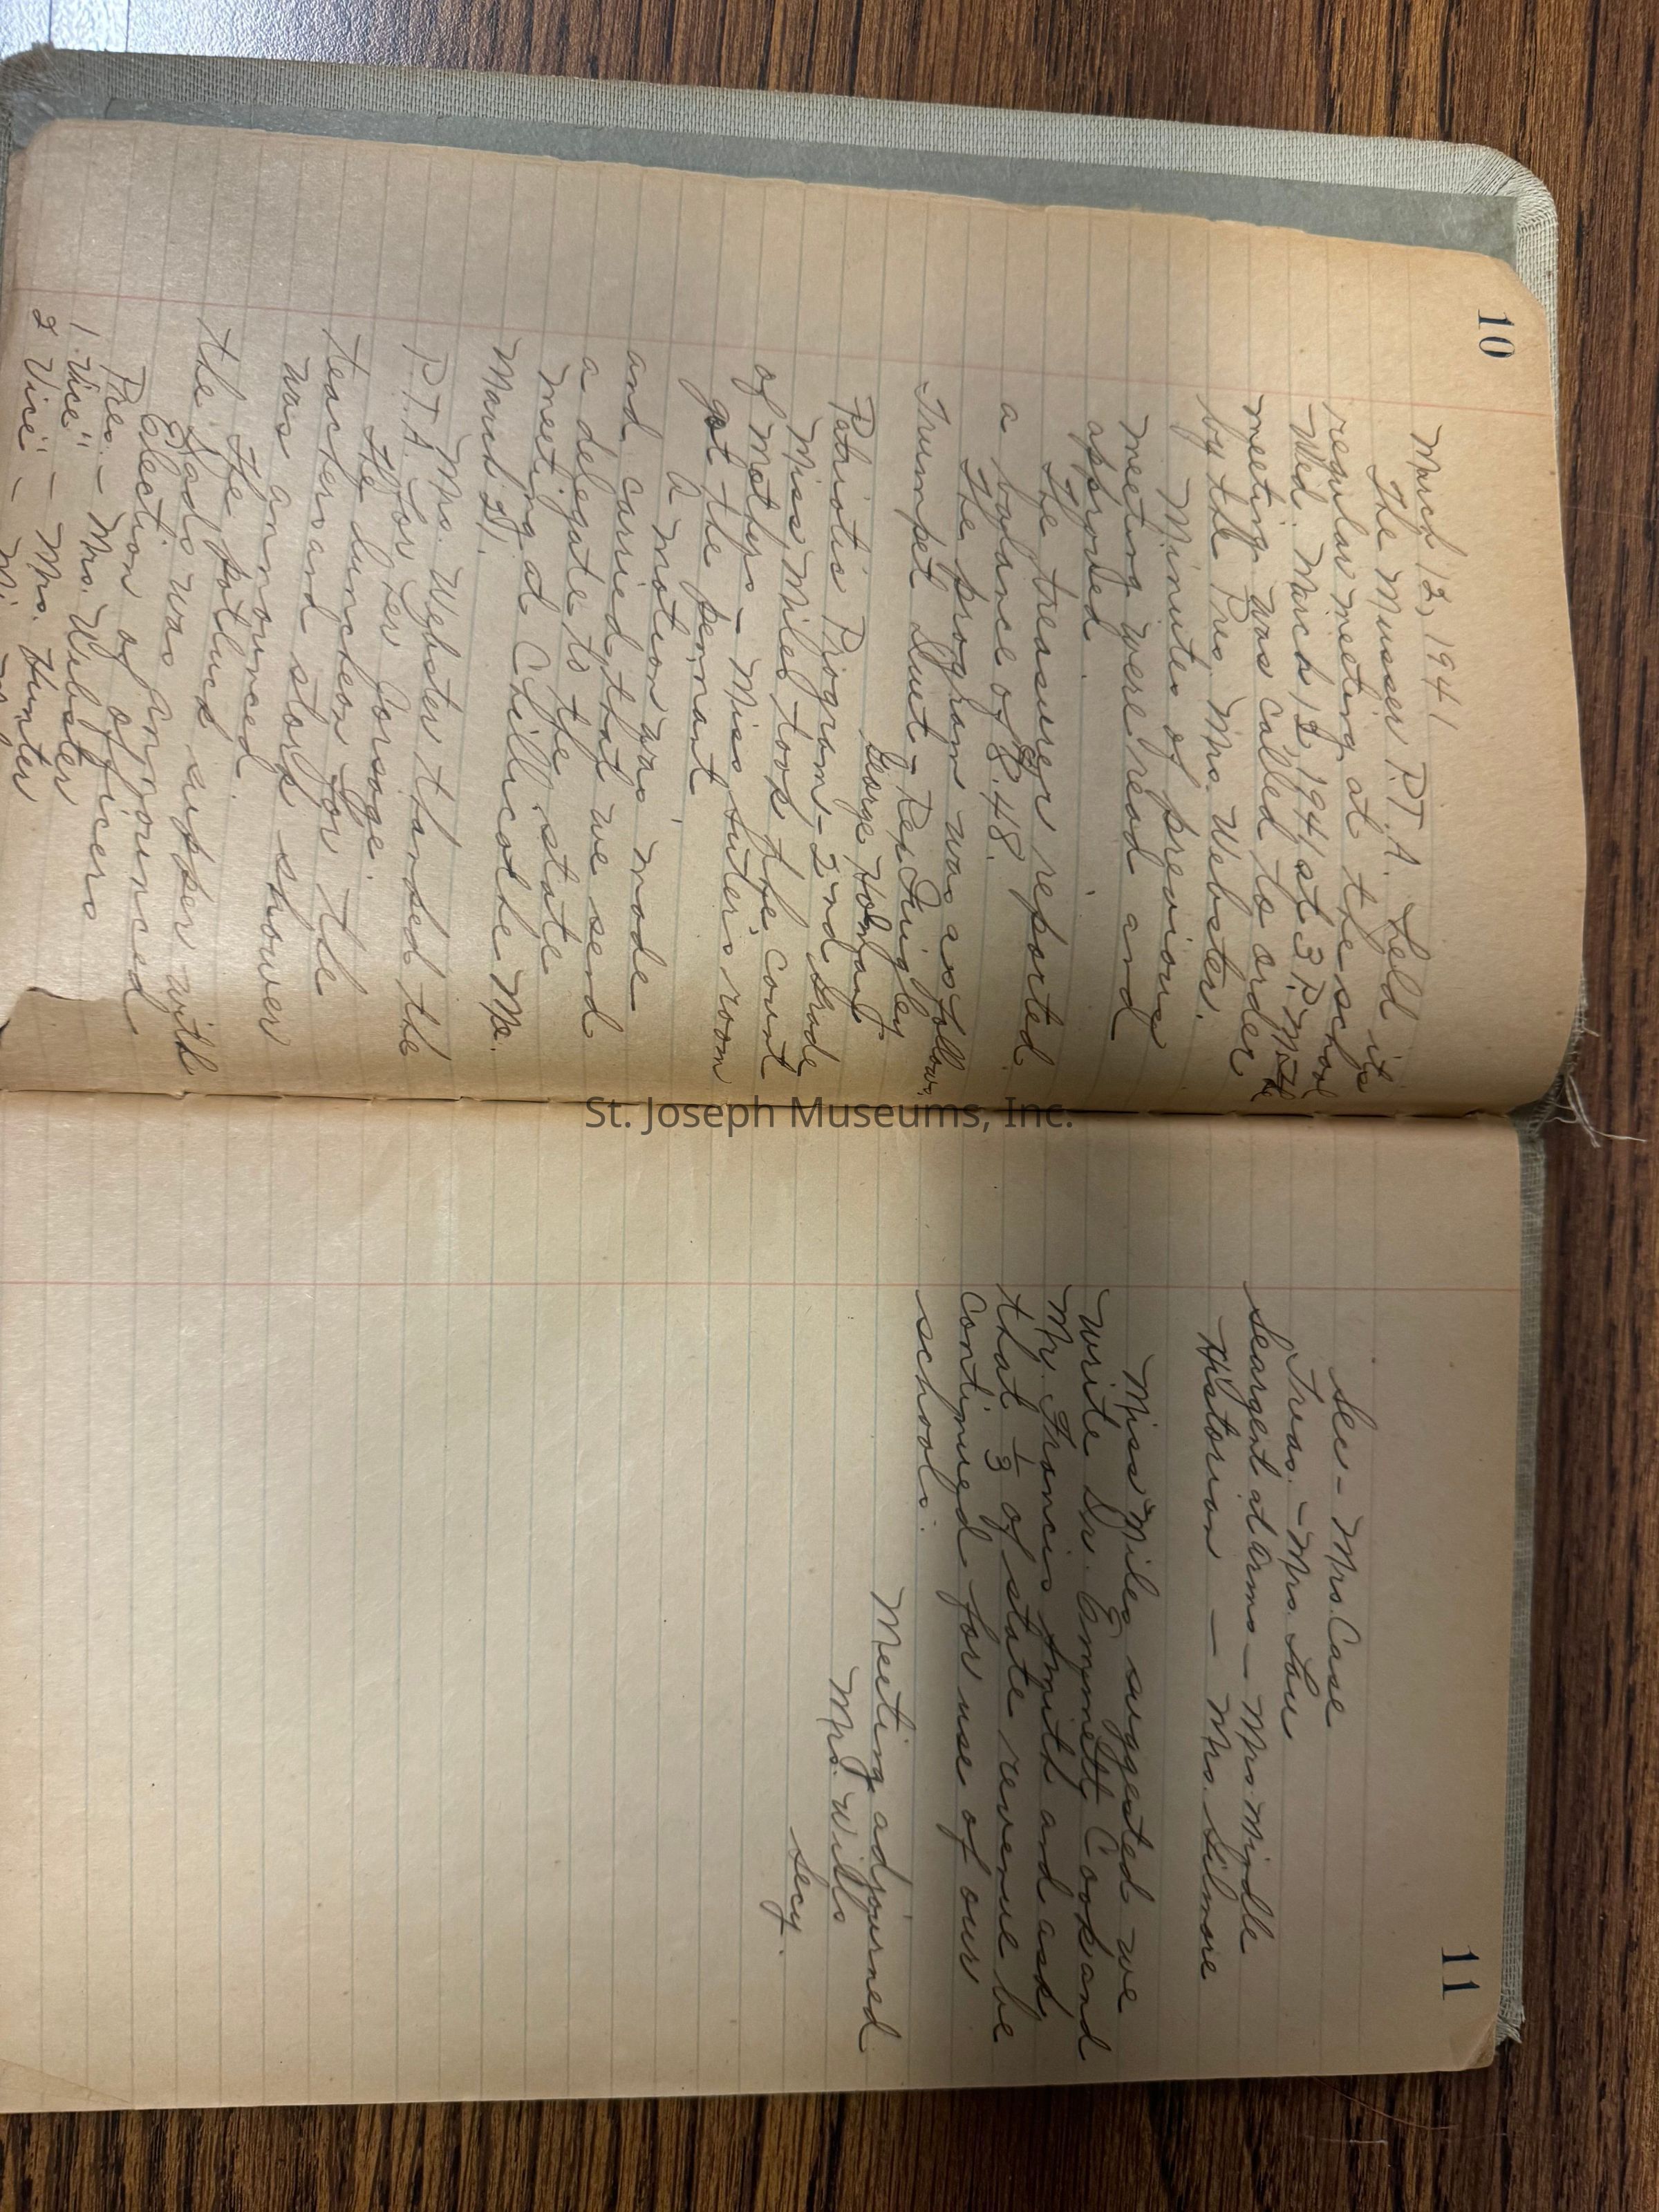 10
March 12, 1941
The Musser P.T.A. held its
regular meeting at the school
Wed. March 12, 1941 at 3 P.M. The
meeting was called to order
by the Pres. Mrs. Webster.
Minutes of previous
meeting were read and
approved.
The treasurer reported
a balance of 8.48.
The program was as follows,
Trumpet Duet - Rex Quigley
George Holman
Patriotic Program - 2nd Grade
Miss Miles took the count
of Mothers - Miss Suter's room
got the pennant.
A motion was made
and carried that we send
a delegate to the state
meeting at Chillicothe Mo.
March 21.
Mrs. Webster thanked the
P.T.A. for her corsage.
The luncheon for the
teachers and stork shower
was announced.
The potluck supper with
the Dads was announced
Election of officers
Pres. - Mrs. Webster
1. Vice" - Mrs. Hunter
2 Vice" -
11
Sec - Mrs. Case
Treas. - Mrs. Law
Seargent at Arms - Mrs. Mindle
Historian - Mrs. Gilmore
Miss Miles suggested we
write Dr. Emmett Cook and
Mr. Francis Smith and ask
that 1/3 of state revenue be
continued for use of our
schools.
Meeting adjourned
Mrs. Wills
Secy.
St. Joseph Museums, Inc.